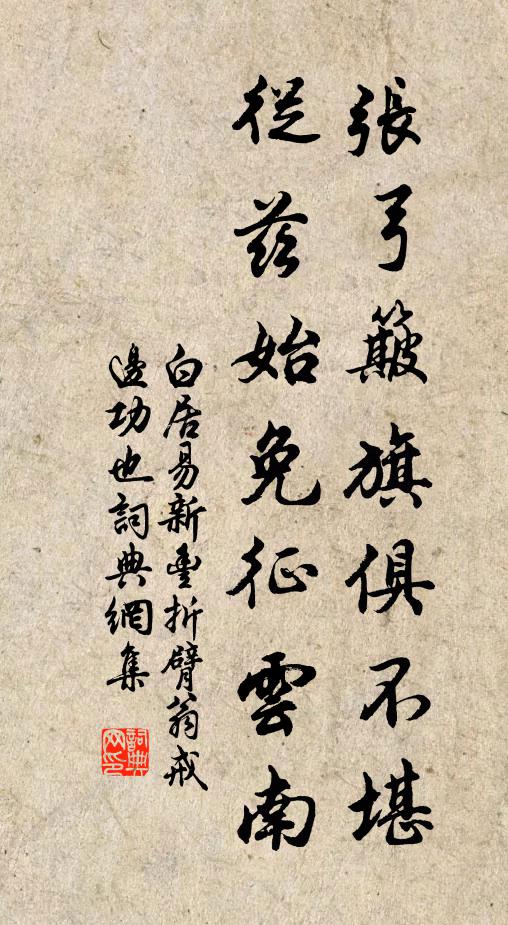 張弓簸旗俱不堪
從茲始免征雲南
白居易新豐折臂翁戒
邊功也詞典網集
詞典網印